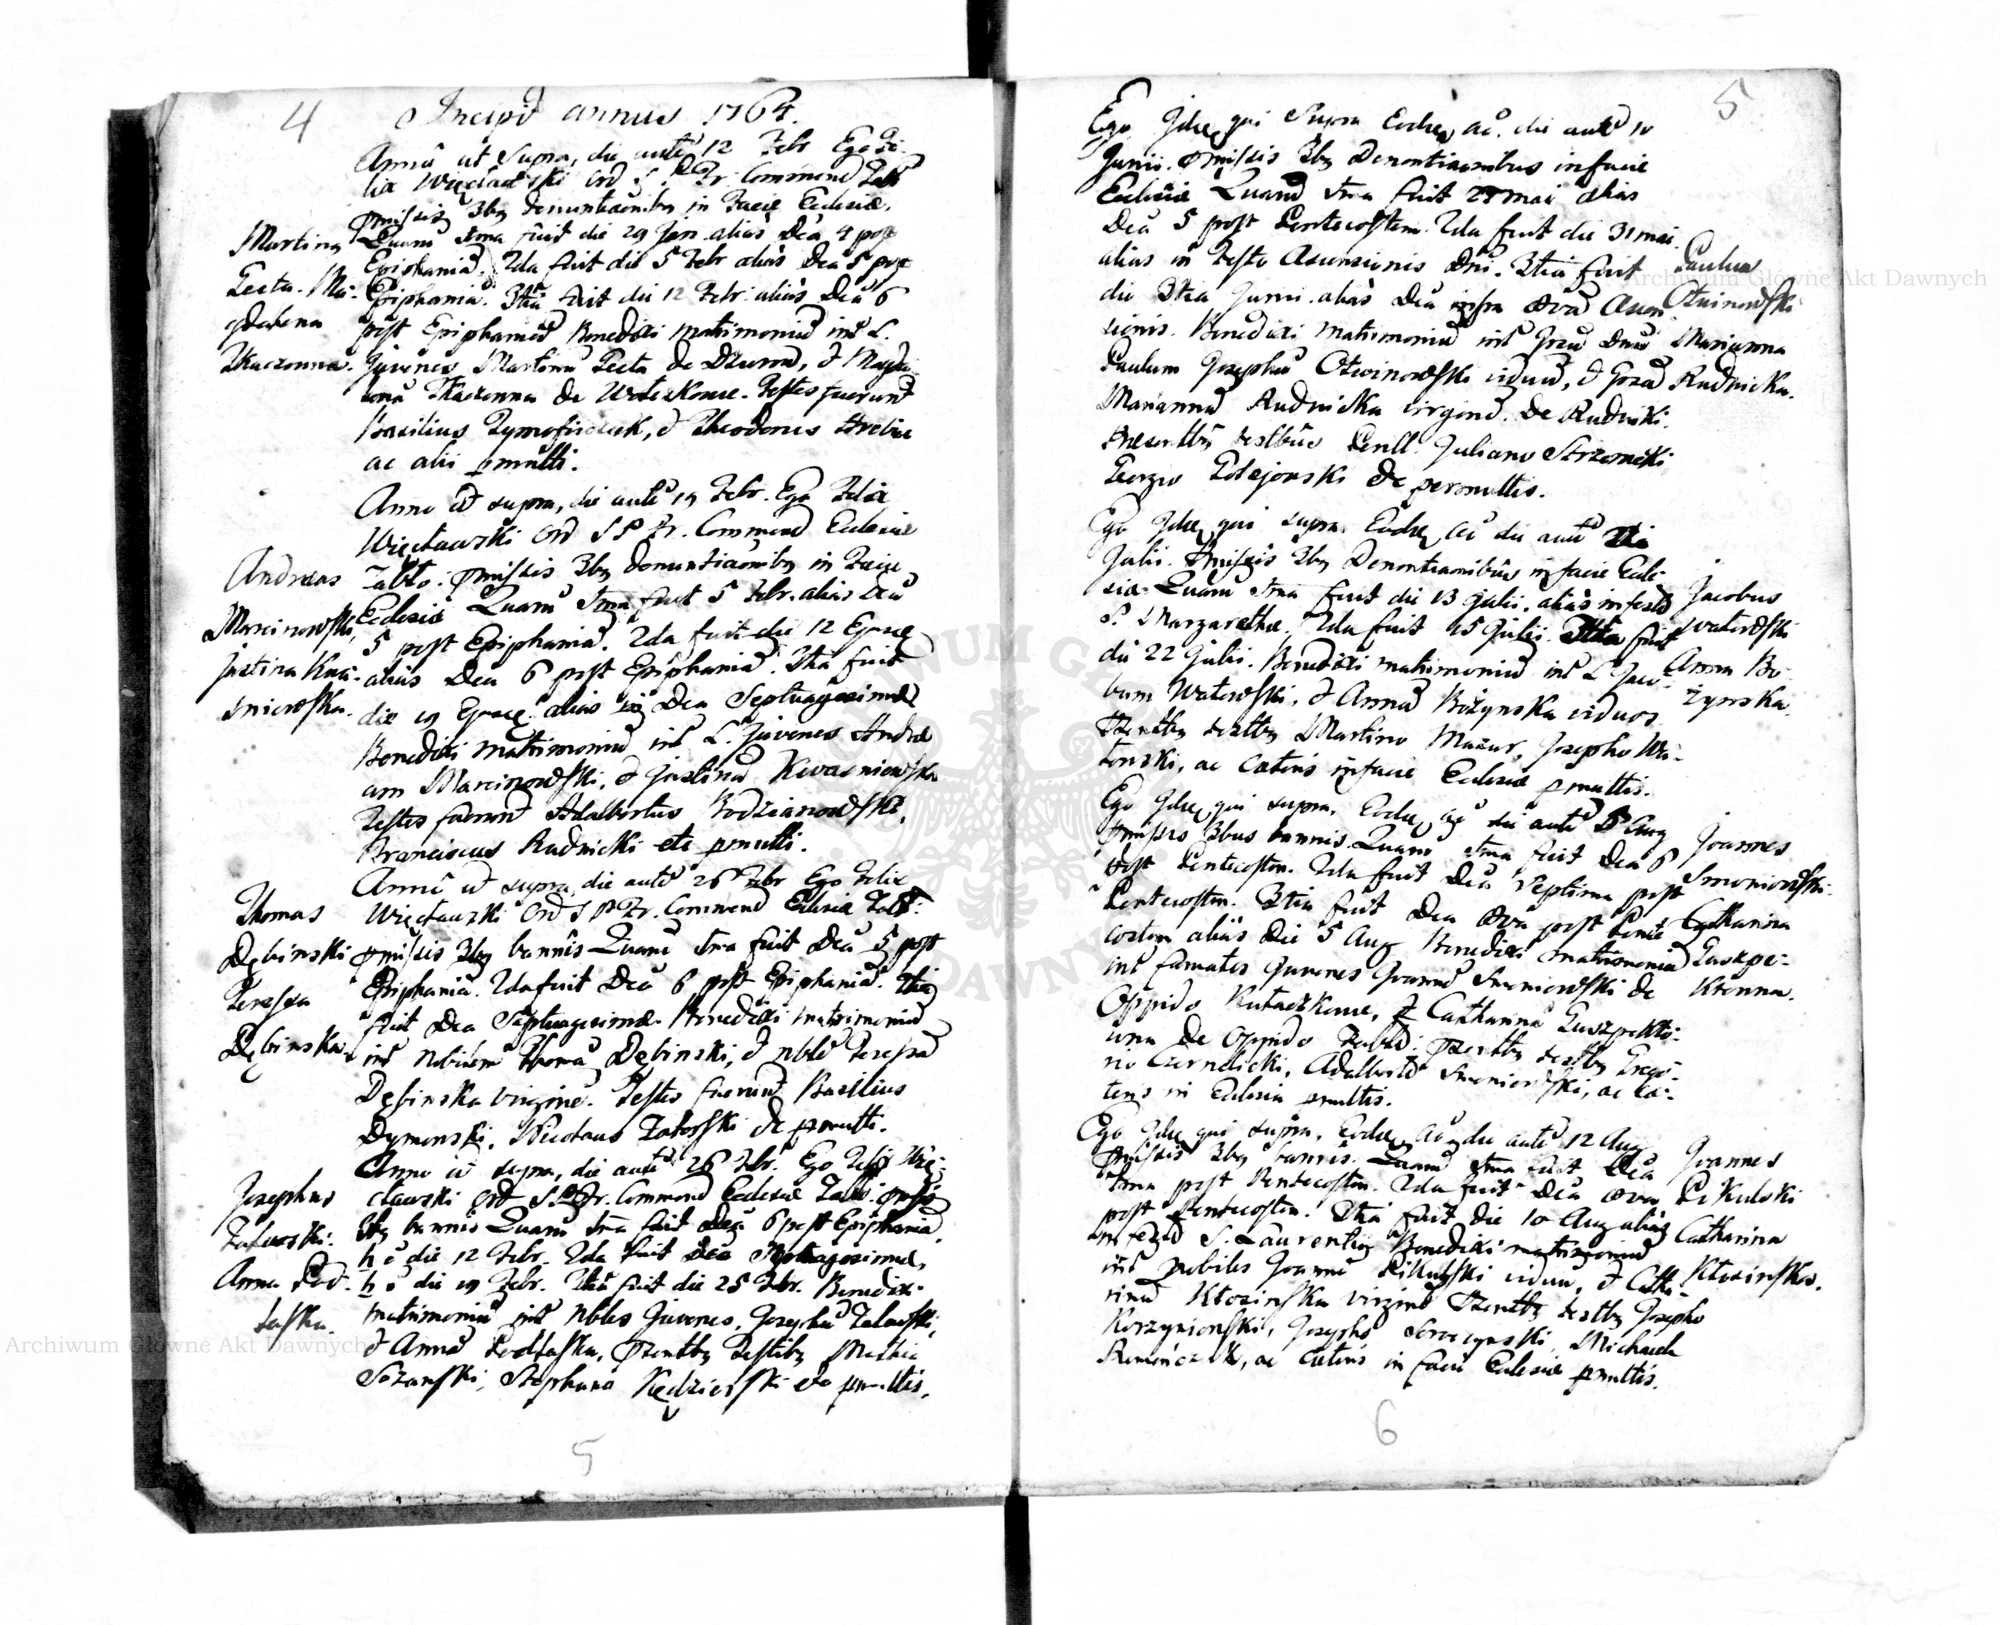 4
Incipit annus 1764.
Anno ut supra, die aute 12 Febr Ego Fe-
lix Więcławski Ord S. P. Fr. Commend Zabł
pmissis 3bq denuntiaonibq in Facie Eclesiæ.
Quaru 1ma fuit die 29 Jan alias Dca 4 post
Epiphaniã. 2da fuit die 5 Febr alias Dca 5 post
Epiphaniã. 3tia fuit die 12 Febr. alias Dca 6
post Epiphaniã Benedixi matrimoniũ int L.
Juvenes Martinũ Pecta de Dżurow, et Magda-
lenã Tkaczonna de Wołczkowe. Testes fuerunt
Basilius Tymofiiczuk, et Theodorus Hrebin
ac alii pmulti.
Martinq
Pecta. Ma-
gdalena
Tkaczonna.
Anno ut supra, die aute 19 Febr. Ego Felix
Więcławski Ord S P Fr. Commend Eclesiæ
Zabło: pmissis 3bq denuntiaonibq in Facie
Eclesiæ Quaru 1ma fuit 5 Febr. alias Dca
5 post Epiphaniã. 2da fuit die 12 Ejusq
alias Dca 6 post Epiphaniã. 3tia fuit
die 19 Ejusq alias Dca Septuagesimæ
Benedixi matrimoniũ int L. Juvenes Andre
am Marcinowski, et Justinã Kwasniowska
Testes fuerunt Adalbertus Bodzianowski,
Franciscus Rudnicki etc pmulti.
Andreas
Marcinowski,
Justina Kwa-
sniowska.
Anno ut supra die aute 26 Febr Ego Felix
Więcławski Ord S P Fr. Commend Eclesiæ Zabł:
pmissis 3bq bannis Quaru 1ma fuit Dca 5 post
Epiphaniã. 2da fuit Dca 6 post Epiphaniã. 3tia
fuit Dca Septuagesimæ. Benedixi matrimoniũ
int Nobilem Thomã Dębinski, et nble Teresiã
Dębinska virginẽ. Testes fuerunt Basilius
Dymonski, Nicolaus Zatorski etc pmulti.
Thomas
Dębinski
Teressa
Dębinska.
Anno ut supra, die aute 26 Febr. Ego Felix Wię-
cławski Ord S. P. Fr. Commend Eclesiæ Zabł: pmissis
3bq bannis Quaru 1ma fuit Dca 6 post Epiphaniã,
h e die 12 Febr. 2da fuit Dca Septuagesimæ,
h e die 19 Febr. 3tia fuit die 25 Febr. Benedixi
matrimoniũ int Nbles Juvenes, Josephũ Zalewski,
et Annã Podlaska, Psentbq Testibq Mathia
Sozanski, Stephano Kędzierski etc pmultis.
Josephus
Zalewski.
Anna Pod-
laska.
5
5
Ego Idem qui Supra Eodem ao. die aute 10
Junii. Pmissis 3bq Denontiaonibus in facie
Eclesiæ Quaru 1ma fuit 27 Mai alias
Dca 5 post Pentecostem. 2da fuit die 31 mai.
alias in Festo Asensionis Dni. 3tia fuit
die 3tia Junii. alias Dca infra 8va Asen
sionis. Benedixi Matrimoniũ int Gsu Dnu
Paulum Josephũ Otwinowski viduũ, et Gosa
Mariannã Rudnicka virginẽ. De Rudniki.
Presentibq testibus Perill. Juliano Strzemecki
Georgio Golejowski etc permultis.
Paulus
Otwinowski
Marianna
Rudnicka.
Ego Idem qui supra. Eodem ao die aute
Julii. Pmissis 3bq Denontiaonibus in facie Ecle-
siæ. Quaru 1ma fuit die 13 Julii. alias in festo
S. Margarethæ. 2da fuit 15 Julii. 3tia fuit
die 22 Julii. Benedixi matrimoniũ int L Jaco-
bum Watowski, et Annã Bożynska viduos.
Psentbq testbq Martino Mazur, Josepho Wa-
towski, ac cæteris in facie Eclesiæ pmultis.
Jacobus
Watowski
Anna Bo-
żynska.
Ego Idem qui supra. Eodem ao die aute 5 Aug
Pmissis 3bus bannis. Quaru 1ma fuit Dca 6
post Pentecosten. 2da fuit Dca Septima post
Pentecosten. 3tia fuit Dca 8va post Pente
costen alias Die 5 Aug Benedixi matrimoniũ
int famatos Juvenes Joannẽ Smoniowski de
Oppido Kułaczkowe, et Catharinã Guszpekto-
wna de Oppido Zabło: Psentbq testbq Grego-
rio Czernelicki, Adalberto Smoniowski, ac Cæ-
teris in Eclesia pmultis.
Joannes
Smoniowski.
Catharina
Guszpe-
ktowna.
Ego Idem qui supra. Eodem ao die aute 12 Aug
Pmissis 3bq bannis. Quaru 1ma fuit Dca
7ma post Pentecosten. 2da fuit Dca 8va
post Pentecosten. 3tia fuit Die 10 Aug alias
in festo S. Laurentii Benedixi matrimoniũ
int nobiles Joannẽ Pikulski viduũ, et Catha-
rinã Kłosinska virginẽ Psentbq testbq Josepho
Korzyniowski, Josepho Soroczynski, Michaele
Semenczuk, ac Cæteris in facie Eclesiæ pmultis.
Joannes
Pikulski
Catharina
Kłosinska.
6
Archiwum Główne Akt Dawnych
Archiwum Główne Akt Dawnych